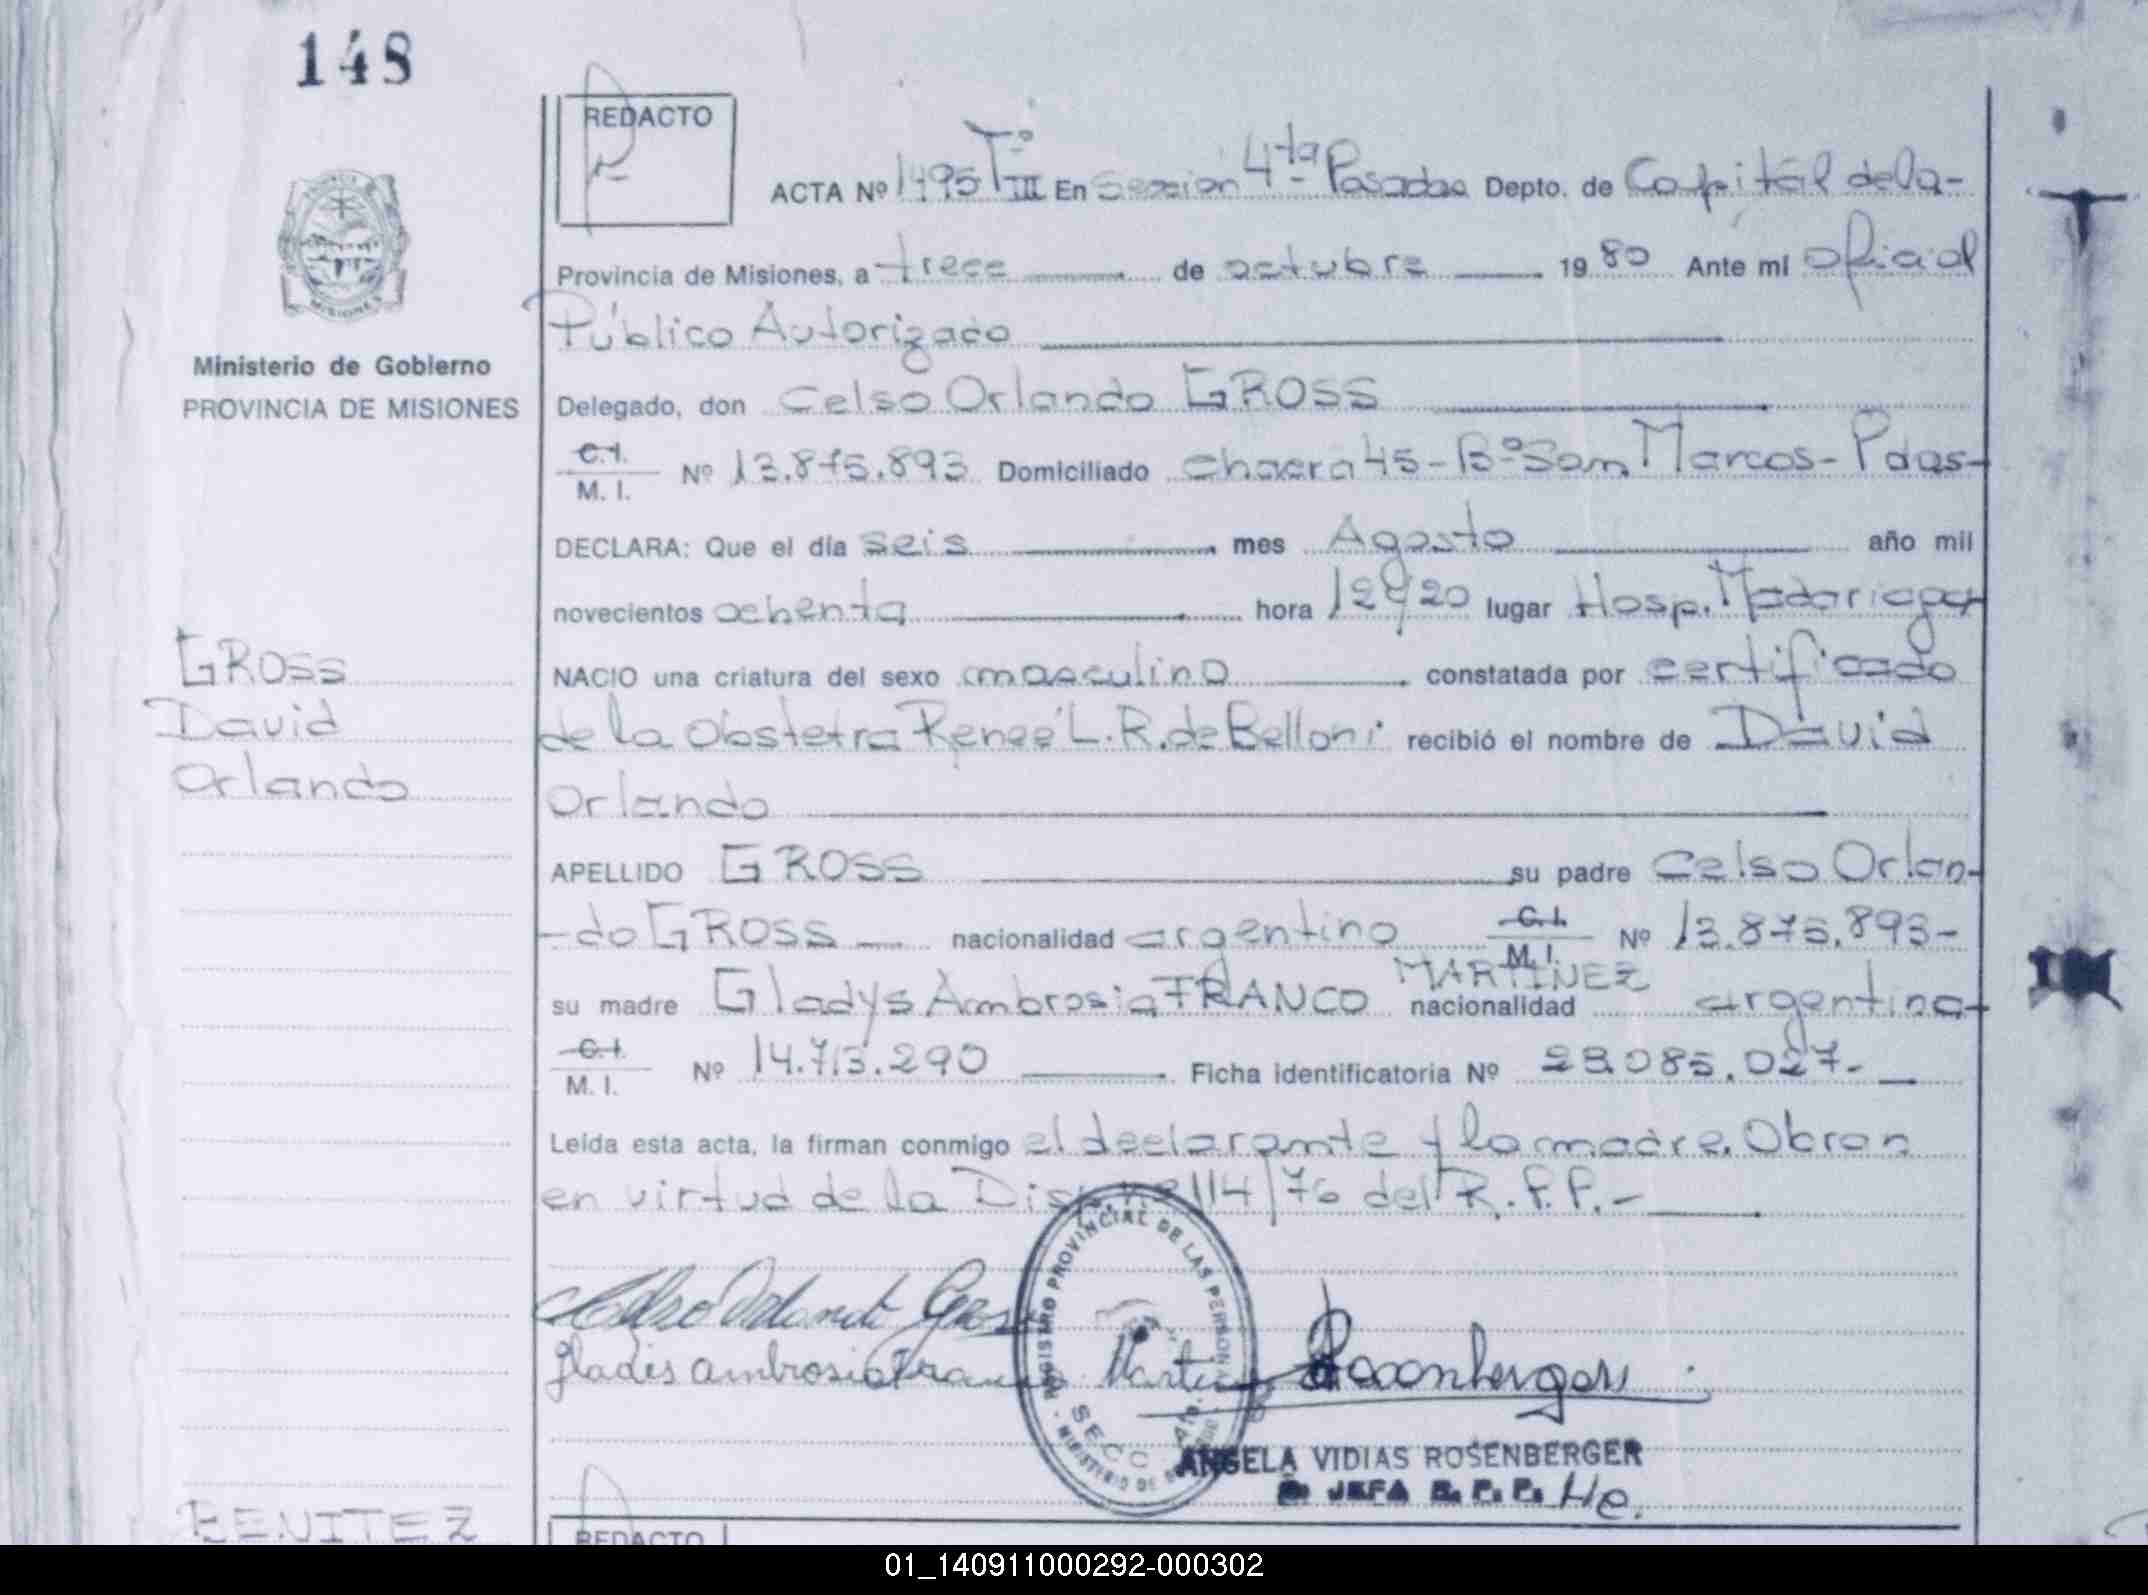 148
REDACTO
ACTA Nº 1495 Tº III En Seccion 4ta Posadas Depto. de Capital de la-
Provincia de Misiones, a trece de octubre 1980 Ante mi oficial
Ministerio de Gobierno
PROVINCIA DE MISIONES
Público Autorizado
Delegado, don Celso Orlando GROSS
C.I. M. I. Nº 13.875.893 Domiciliado chacra 45-Bº San Marcos-Pdas-
DECLARA: Que el día seis mes Agosto año mil
novecientos ochenta hora 12y20 lugar Hosp. Madariaga
NACIO una criatura del sexo masculino constatada por certificado
de la Obstetra Reneé L.R. de Belloni recibió el nombre de David
Orlando
GROSS
David
Orlando
APELLIDO GROSS su padre Celso Orlan-
-do GROSS nacionalidad argentino C.I. M. I. Nº 13.875.893-
su madre Gladys Ambrosia FRANCO MARTINEZ nacionalidad argentina
C.I. M. I. Nº 14.713.290 Ficha identificatoria Nº 28.085.027-
Leída esta acta, la firman conmigo el declarante y la madre. Obran
en virtud de la Disp. nº 114/76 del R.P.P.-
Celso Orlando Gross
Gladis Ambrosia Franco Martinez Rosenberger
REGISTRO PROVINCIAL DE LAS PERSONAS
SECC 4ta.
MINISTERIO DE
ANGELA VIDIAS ROSENBERGER
JEFA R. P. P. He.
BENITEZ
REDACTO
01_140911000292-000302